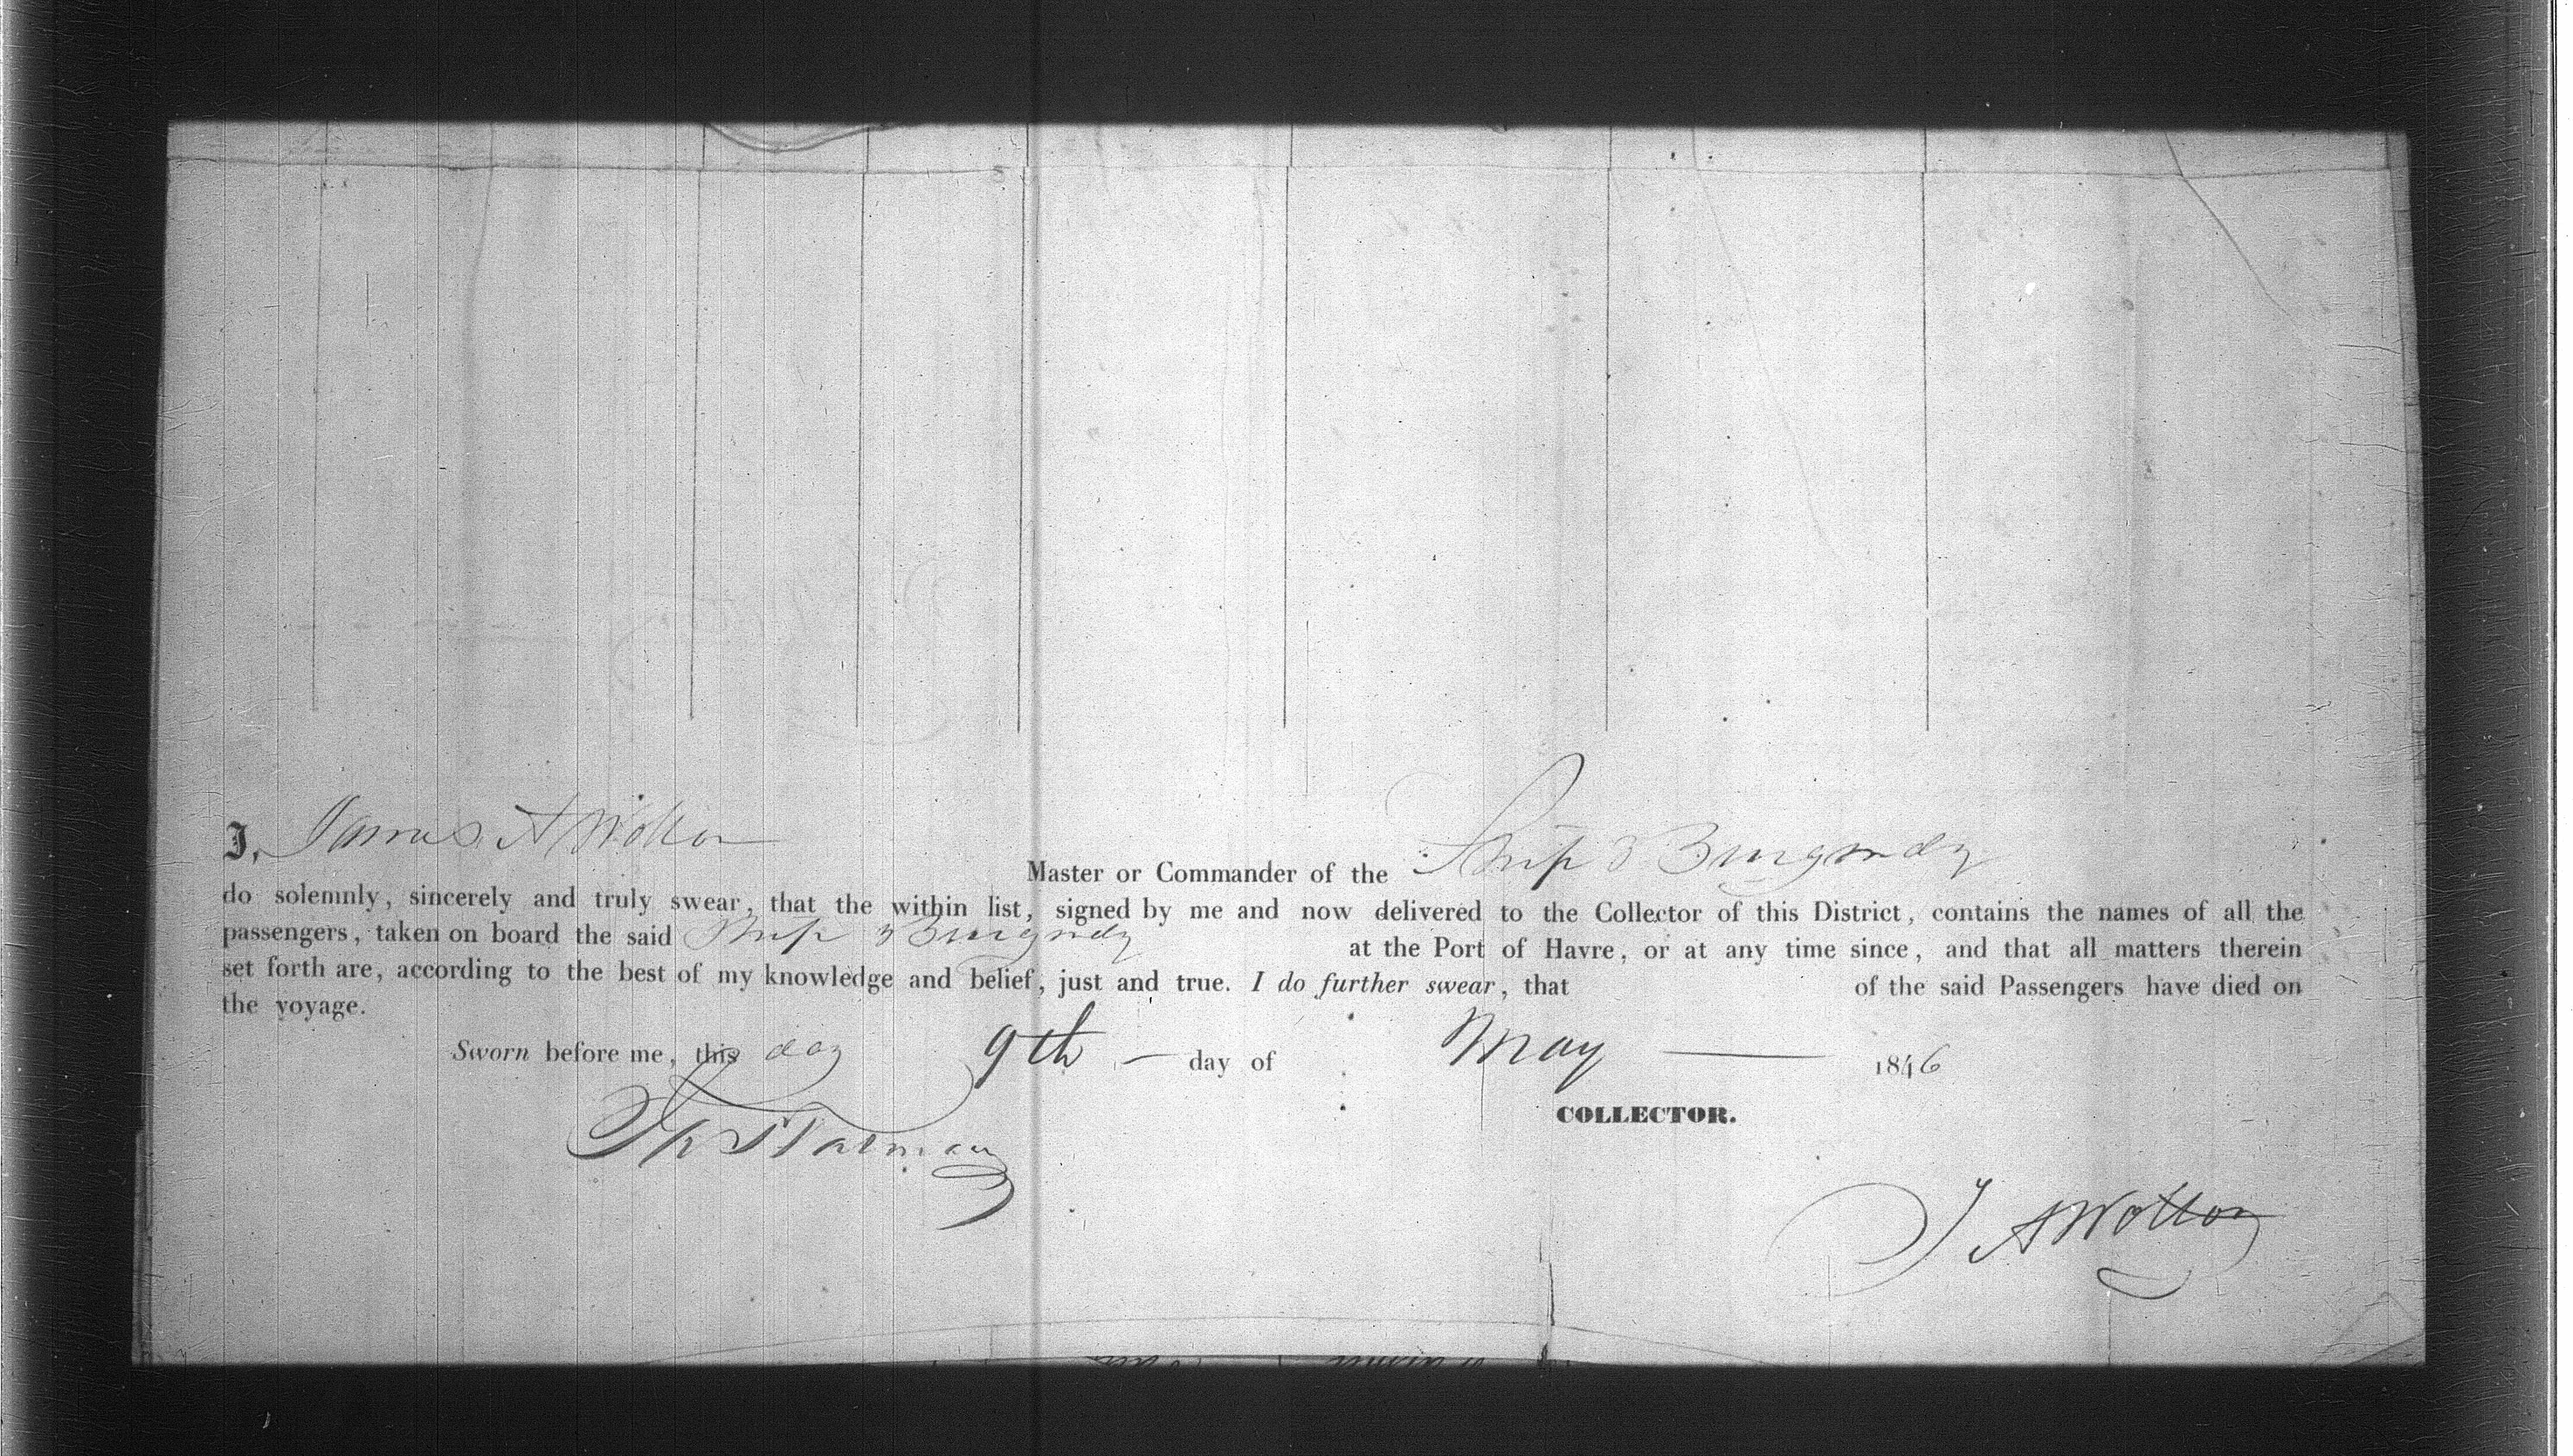 I, James A Wotton Master or Commander of the Ship Burgundy
do solemnly, sincerely and truly swear, that the within list, signed by me and now delivered to the Collector of this District, contains the names of all the
passengers, taken on board the said Ship Burgundy at the Port of Havre, or at any time since, and that all matters therein
set forth are, according to the best of my knowledge and belief, just and true. I do further swear, that of the said Passengers have died on
the voyage.
Sworn before me, this day 9th — day of May — 1846
COLLECTOR.
J A Wotton